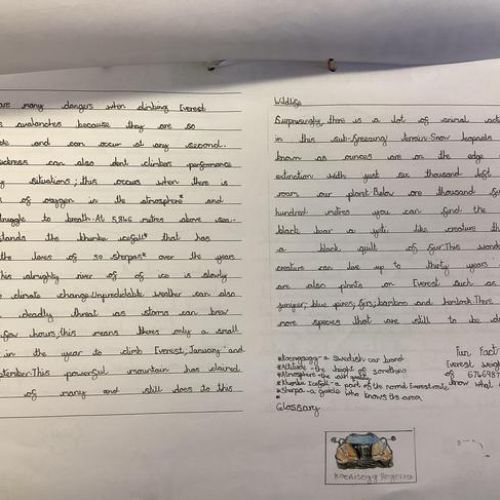 are many dangers when climbing Everest
avalanches because they are so
and can occur at any second.
sickness can also dent climbers performance
situations; this occurs when there is
of oxygen in the atmosphere* and
struggle to breath. At 5,846 metres above sea-
stands the khumbu icefall* that has
the loves of 50 sherpas* over the years
this almighty river of of ice is slowly
climate change. Unpredictable weather can also
deadly threat as storms can brew
few hours, this means theres only a small
in the year to climb Everest; January and
September. This powerful mountain has
of many and still does to this
Wildlife
Surprisingly, there is a lot of animal
in this sub-freezing terrain. Snow leopards
known as ounces are on the edge
extinction with just six thousand left
roam our plant. Below are thousand
hundred metres you can find the
black bear a yeti like creature
a black quilt of fur. This
creature can live up to thirty years
are also plants on Everest such as
juniper, blue pines, firs, bamboo and hemlock. There
more species that are still to be
*Koenigsegg - a Swedish car brand
*Altitude - the height of something
*Atmosphere - the
*Khumbu Icefall - a part of the
*Sherpa - a guide who knows the area
Glossary
Fun Fact
Everest
of
know what
Koenigsegg Regera